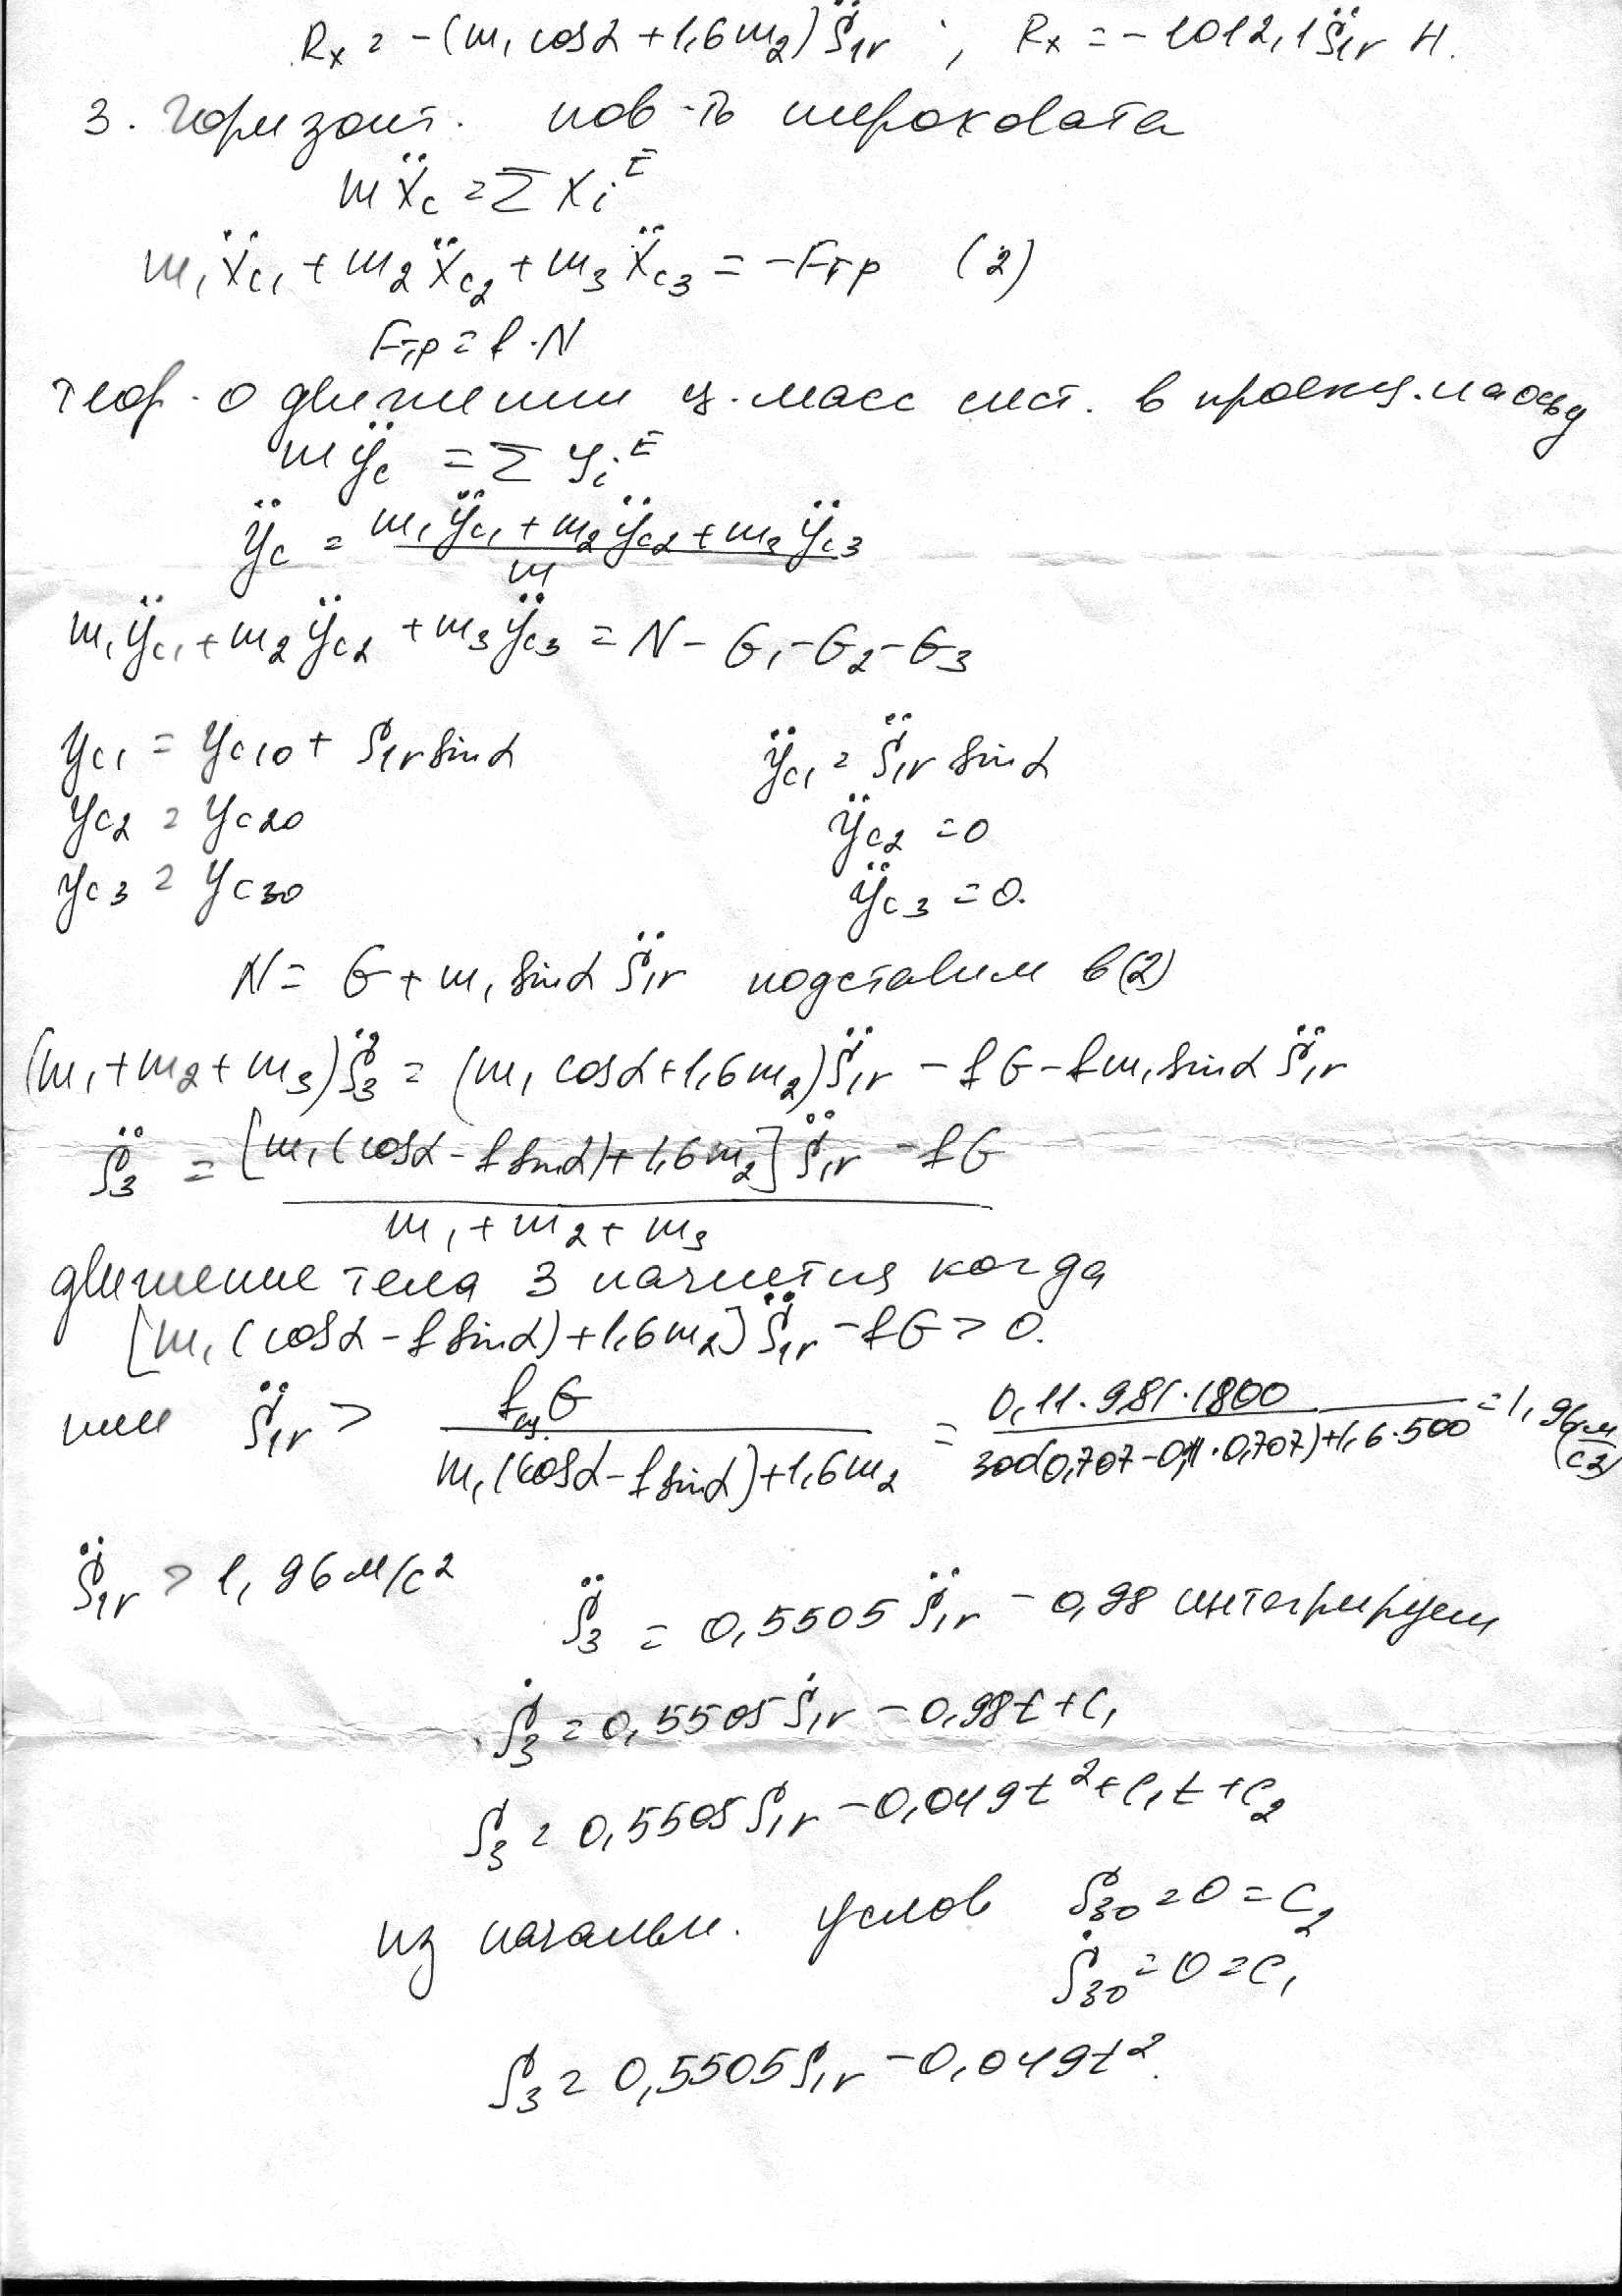 Rx = -(m₁cosα + 1,6m₂)S̈₁r ; Rx = -1012,1S̈₁r Н.
3. Горизонт. пов-ть шероховата
mẍc = Σ Xiᴱ
m₁ẍc₁ + m₂ẍc₂ + m₃ẍc₃ = -Fтр (2)
Fтр = f·N
теор. о движении ц. масс сист. в проекц. на ось y
mÿc = Σ Yiᴱ
ÿc = (m₁ÿc₁ + m₂ÿc₂ + m₃ÿc₃) / m
m₁ÿc₁ + m₂ÿc₂ + m₃ÿc₃ = N - G₁ - G₂ - G₃
yc₁ = yc₁₀ + S₁r sinα ÿc₁ = S̈₁r sinα
yc₂ = yc₂₀ ÿc₂ = 0
yc₃ = yc₃₀ ÿc₃ = 0.
N = G + m₁ sinα S̈₁r подставим в (2)
(m₁ + m₂ + m₃)S̈₃ = (m₁ cosα + 1,6m₂)S̈₁r - fG - fm₁sinα S̈₁r
S̈₃ = ([m₁(cosα - f sinα) + 1,6m₂]S̈₁r - fG) / (m₁ + m₂ + m₃)
движение тела 3 начнется когда
[m₁(cosα - f sinα) + 1,6m₂]S̈₁r - fG > 0.
или S̈₁r > fсц G / (m₁(cosα - f sinα) + 1,6m₂) = 0,11·9,81·1800 / (300(0,707-0,11·0,707)+1,6·500) = 1,96 (м/с2)
S̈₁r > 1,96 м/с²
S̈₃ = 0,5505 S̈₁r - 0,98 интегрируем
Ṡ₃ = 0,5505 Ṡ₁r - 0,98t + C₁
S₃ = 0,5505 S₁r - 0,049t² + C₁t + C₂
из начальн. услов S₃₀ = 0 = C₂
Ṡ₃₀ = 0 = C₁
S₃ = 0,5505 S₁r - 0,049t².